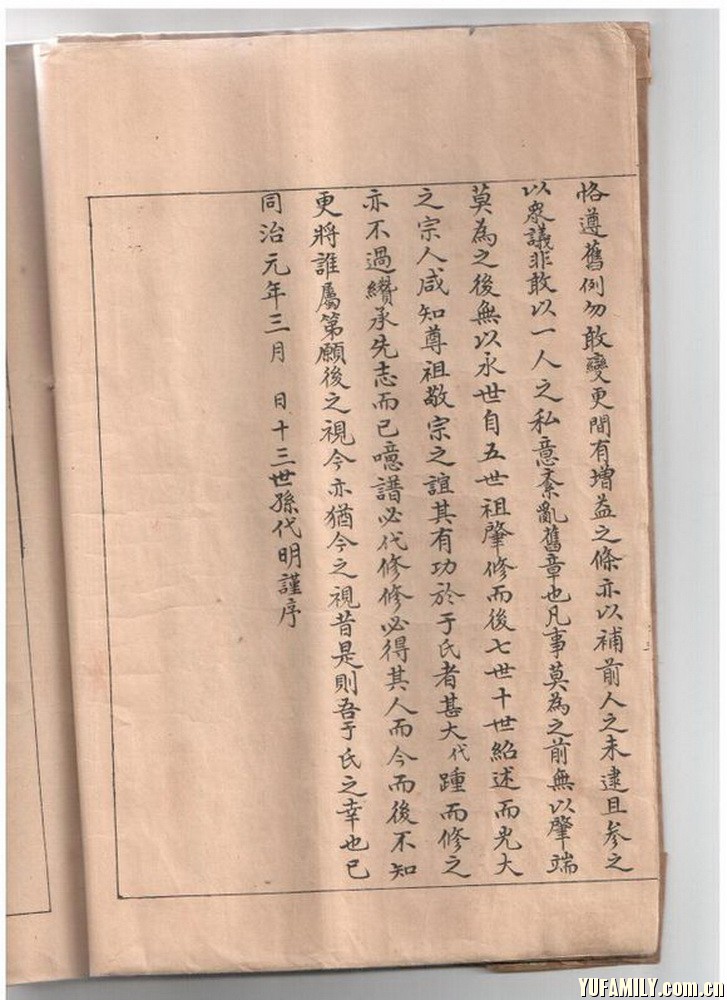 恪遵舊例勿敢變更間有增益之條亦以補前人之未逮且参之
以衆議非敢以一人之私意紊亂舊章也凡事莫為之前無以肇端
莫為之後無以永世自五世祖肇修而後七世十世紹述而光大
之宗人咸知尊祖敬宗之誼其有功於于氏者甚大代踵而修之
亦不過纘承先志而已噫譜必代修修必得其人而今而後不知
更將誰屬第願後之視今亦猶今之視昔是則吾于氏之幸也已
同治元年三月 日十三世孫代明謹序
YUFAMILY.com.cn